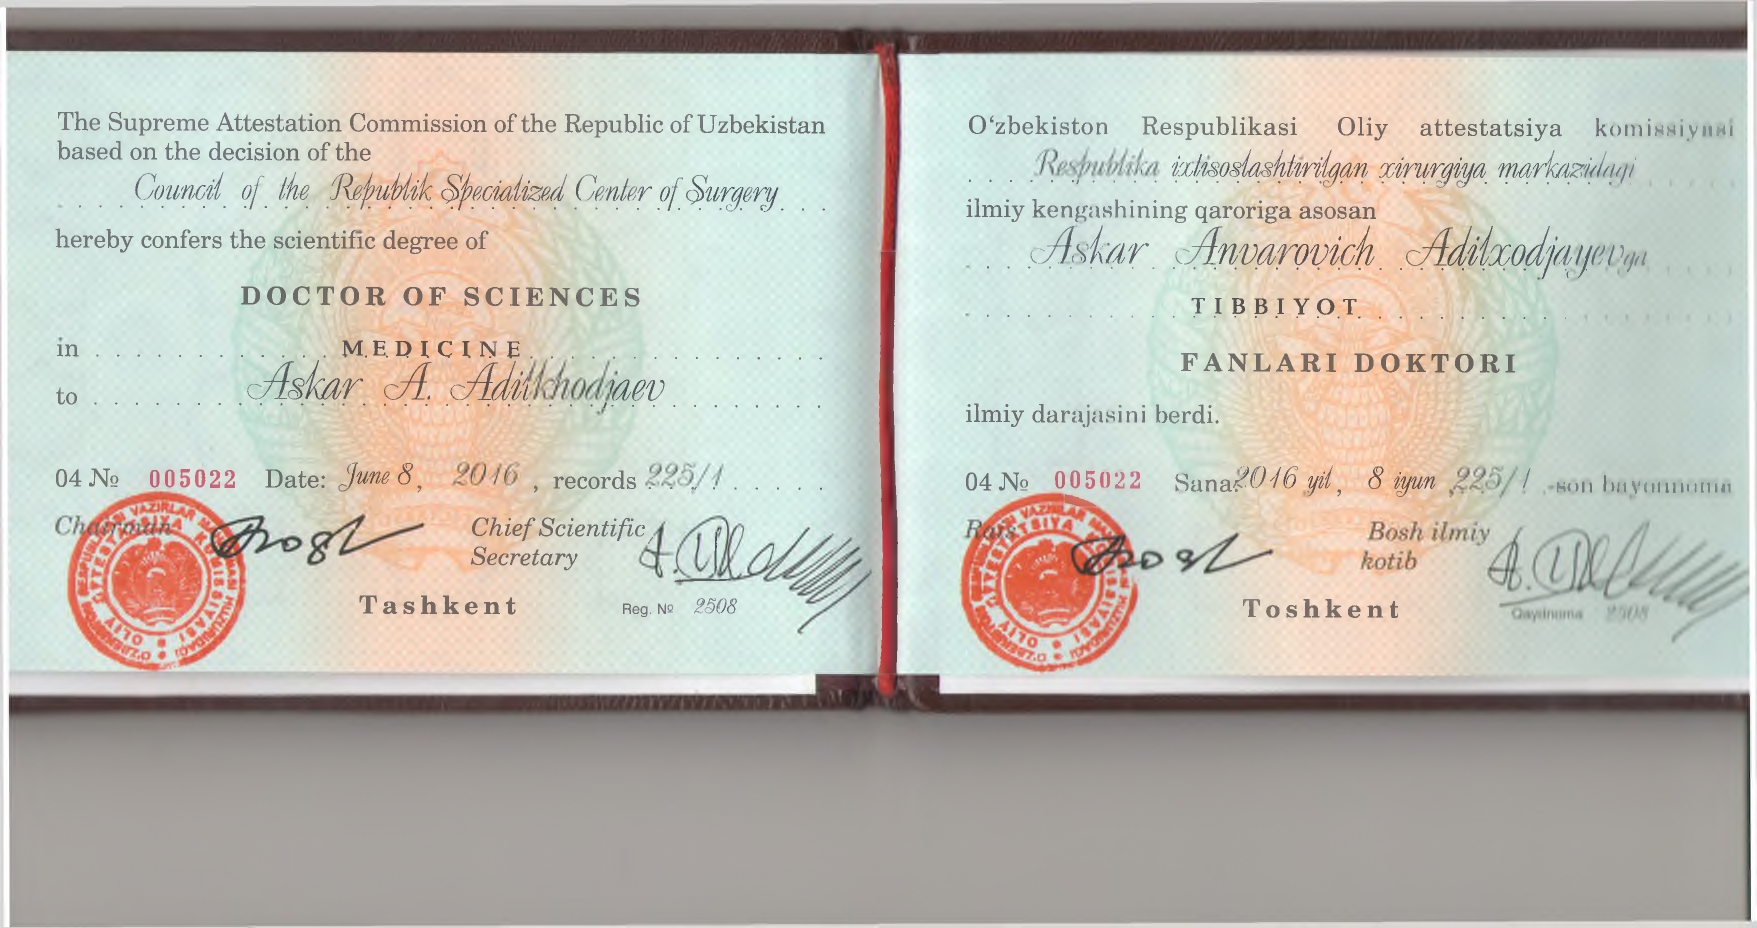 The Supreme Attestation Commission of the Republic of Uzbekistan
based on the decision of the
Council of the Republik Specialized Center of Surgery
hereby confers the scientific degree of
DOCTOR OF SCIENCES
in MEDICINE
to Askar A. Adilkhodjaev
04 № 005022 Date: June 8, 2016, records 225/1
Chairman
Chief Scientific
Secretary
Tashkent
Reg. № 2508
O‘zbekiston Respublikasi Oliy attestatsiya komissiyasi
Respublika ixtisoslashtirilgan xirurgiya markazidagi
ilmiy kengashining qaroriga asosan
Askar Anvarovich Adilxodjayevga
TIBBIYOT
FANLARI DOKTORI
ilmiy darajasini berdi.
04 № 005022 Sana: 2016 yil, 8 iyun 225/1 -son bayonnoma
Rais
Bosh ilmiy
kotib
Toshkent
Qaydnoma 2508